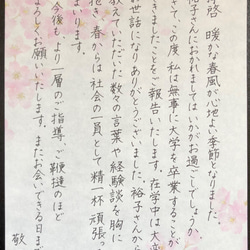 拝啓 暖かな春風が心地よい季節となりました。
裕子さんにおかれましてはいかがお過ごしでしょうか。
さて、この度、私は無事に大学を卒業することが
できましたことをご報告いたします。在学中は大変
お世話になりありがとうございました。裕子さんから
教えていただいた数々の言葉や経験談を胸に
抱き、春からは社会の一員として精一杯頑張っ
まいります。
今後もより一層のご指導、ご鞭撻のほど
よろしくお願いいたします。またお会いできる日まで
敬